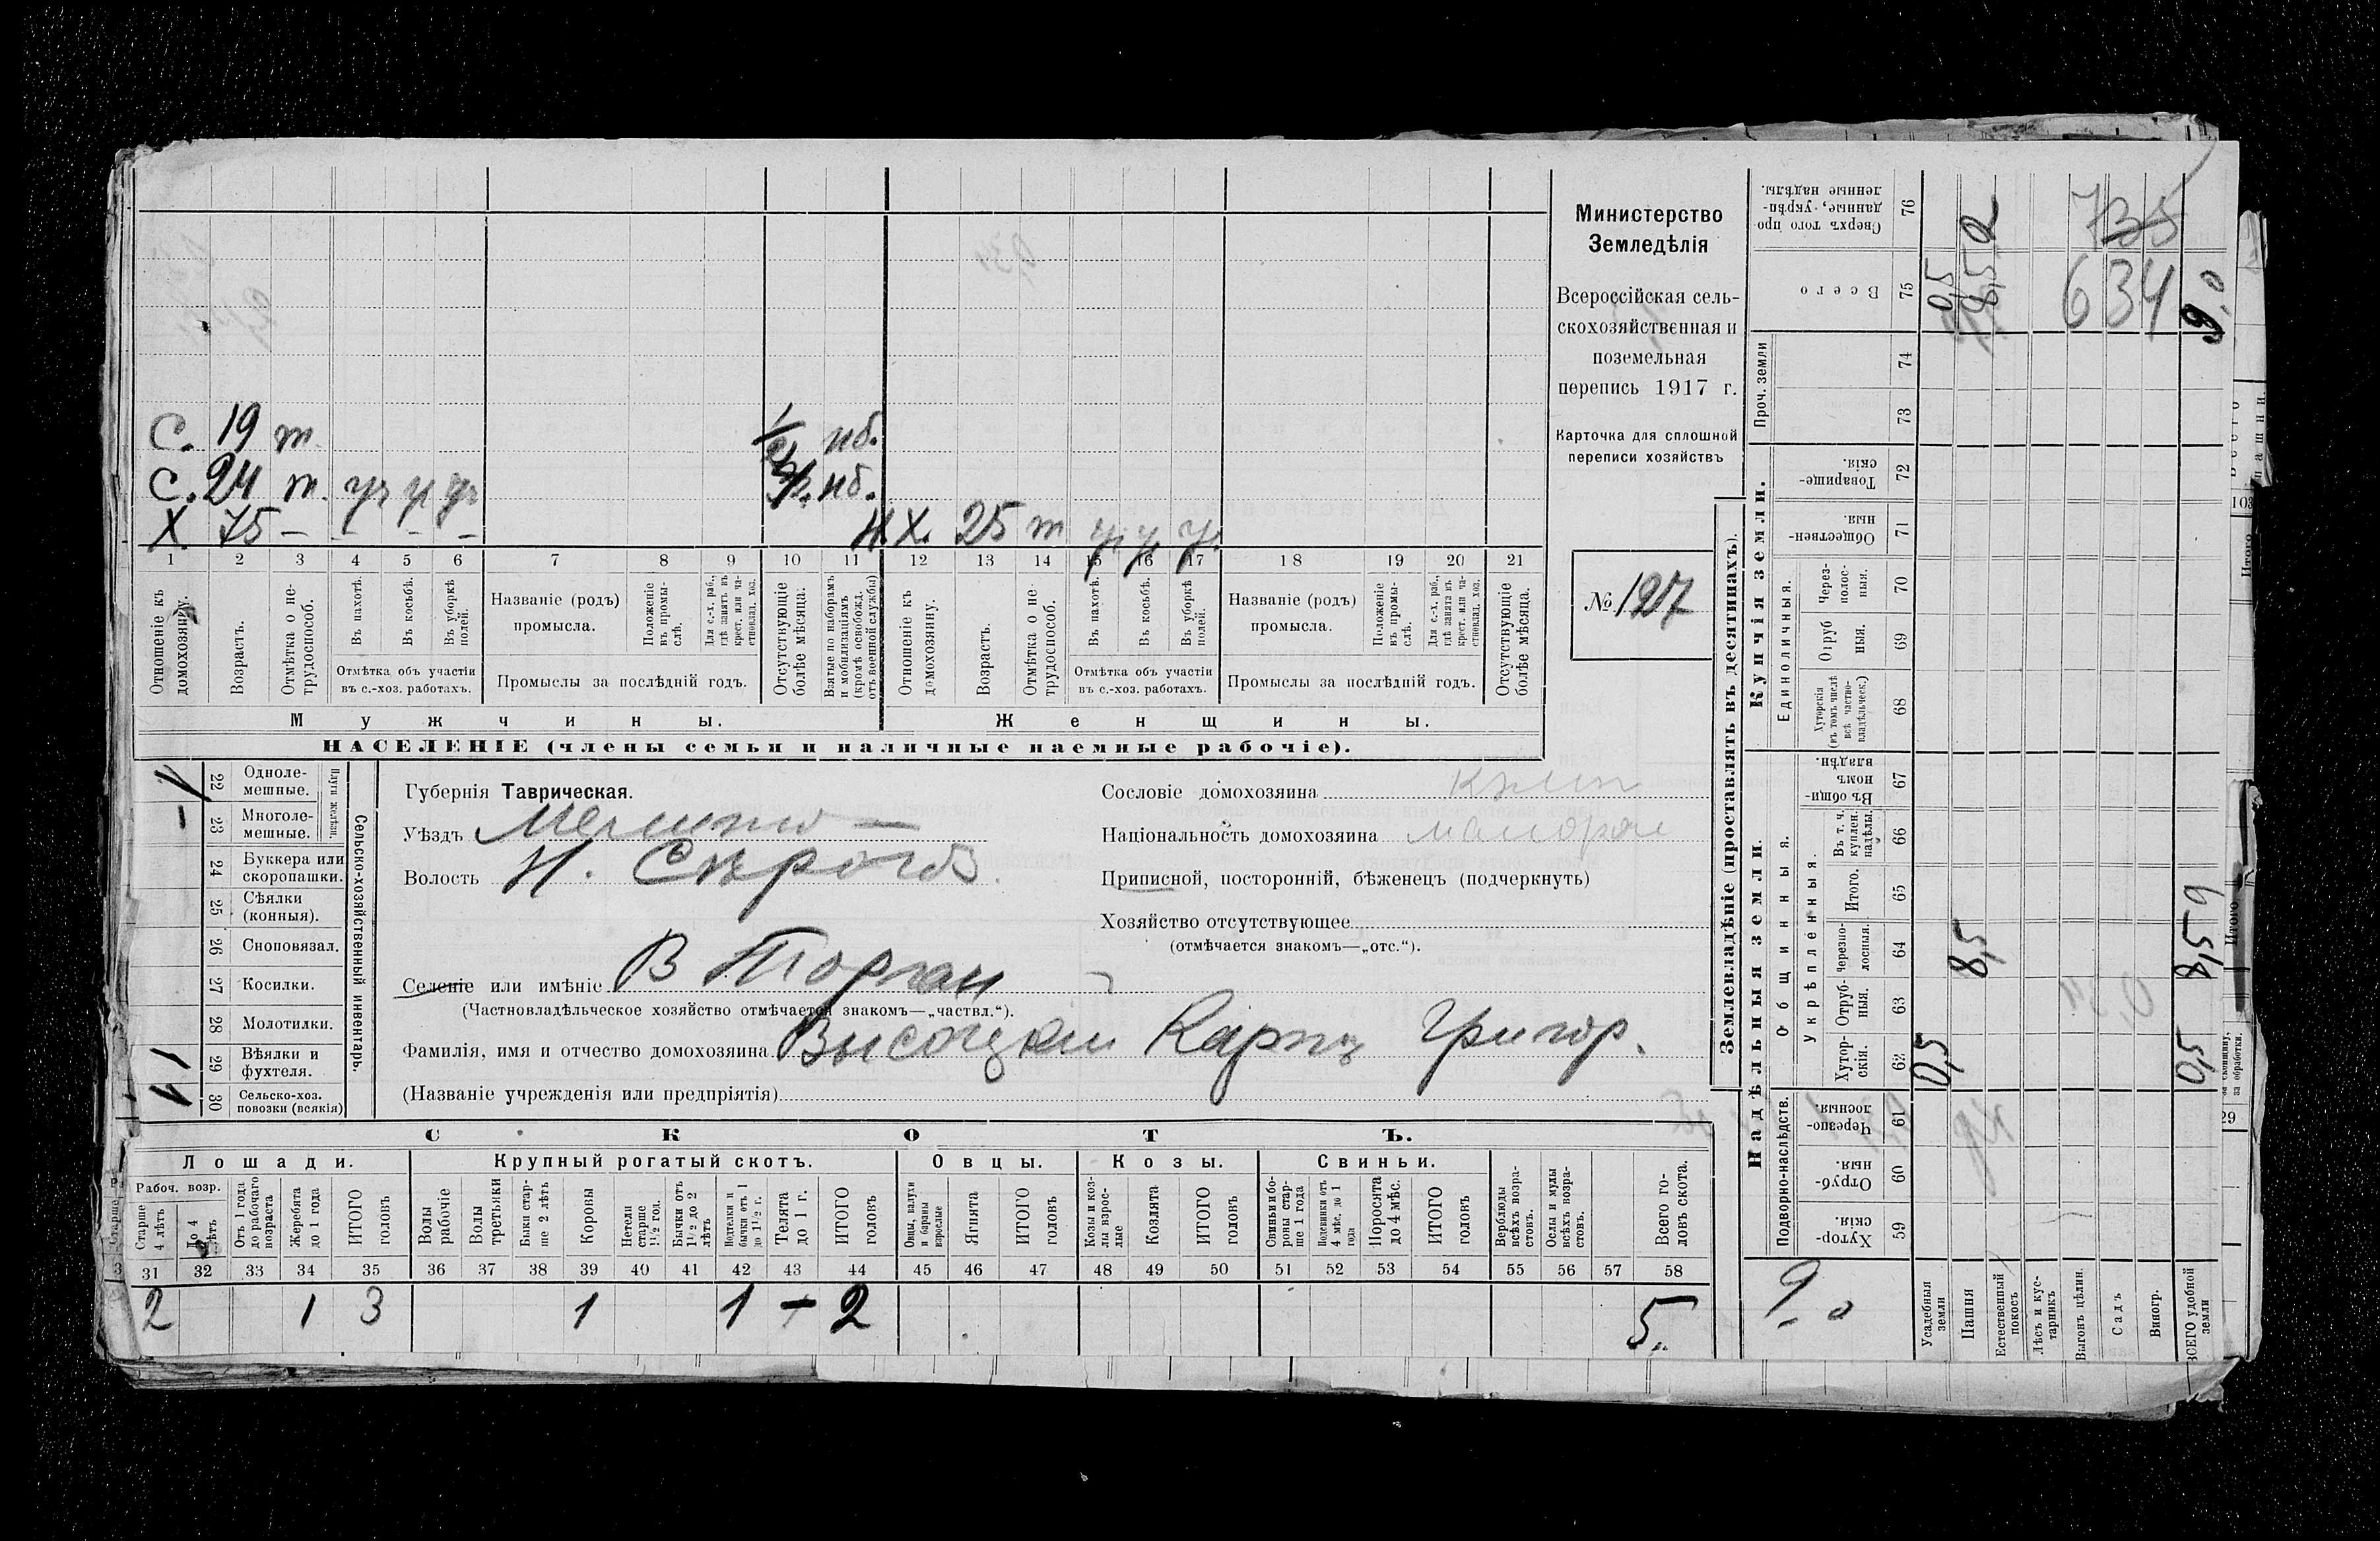 С. 19 т. нб.
С. 24 т. у. у. у. нб.
Х 75 — — — —
Н Х. 25 т у. у. у.
1 2 3 4 5 6 7 8 9 10 11 12 13 14 15 16 17 18 19 20 21
Отношеніе къ домохозяину.
Возрастъ.
Отмѣтка о нетрудоспособ.
Въ пахотѣ.
Въ косьбѣ.
Въ уборкѣ полей.
Отмѣтка объ участіи
въ с.-хоз. работахъ.
Названіе (родъ)
промысла.
Положеніе въ промыслѣ.
Для с.-х. раб., гдѣ занятъ въ крест. или частновлад. хоз.
Промыслы за послѣдній годъ.
Отсутствующіе болѣе мѣсяца.
Взятые по наборамъ и мобилизаціямъ (кромѣ освобожд. отъ военной службы)
Отношеніе къ домохозяину.
Возрастъ.
Отмѣтка о нетрудоспособ.
Въ пахотѣ.
Въ косьбѣ.
Въ уборкѣ полей.
Отмѣтка объ участіи
въ с.-хоз. работахъ.
Названіе (родъ)
промысла.
Положеніе въ промыслѣ.
Для с.-х. раб., гдѣ занята въ крест. или частновлад. хоз.
Промыслы за послѣдній годъ.
Отсутствующіе болѣе мѣсяца.
Мужчины. Женщины.
НАСЕЛЕНІЕ (члены семьи и наличные наемные рабочіе).
Министерство
Земледѣлія
Всероссійская сель-
скохозяйственная и
поземельная
перепись 1917 г.
Карточка для сплошной
переписи хозяйствъ
№ 127
22 Однолемешные. 1
23 Многолемешные. -
Плуги желѣзн.
24 Буккера или скоропашки.
25 Сѣялки (конныя).
26 Сноповязал.
27 Косилки.
28 Молотилки.
29 Вѣялки и фухтеля. 1
30 Сельско-хоз. повозки (всякія) 1
Сельско-хозяйственный инвентарь.
Губернія Таврическая.
Уѣздъ Мелитпо —
Волость Н. Сѣрогоз.
Селеніе или имѣніе В Торгаи
(Частновладѣльческое хозяйство отмѣчается знакомъ—„частвл.“).
Фамилія, имя и отчество домохозяина Высоцкій Карпъ Григор.
(Названіе учрежденія или предпріятія)
Сословіе домохозяина
Національность домохозяина малорос
Приписной, посторонній, бѣженецъ (подчеркнуть)
Хозяйство отсутствующее
(отмѣчается знакомъ—„отс.“).
СКОТЪ.
Лошади. Крупный рогатый скотъ. Овцы. Козы. Свиньи.
Рабоч. возр.
Старше 4 лѣтъ
До 4 лѣтъ
Отъ 1 года до рабочаго возраста
Жеребята до 1 года
ИТОГО головъ
Волы рабочіе
Волы третьяки
Быки старше 2 лѣтъ
Коровы
Нетели старше 1½ год.
Бычки отъ 1½ до 2 лѣтъ
Нетелки и бычки отъ 1 до 1½ г.
Телята до 1 г.
ИТОГО головъ
Овцы, валухи и бараны взрослые
Ягнята
ИТОГО головъ
Козы и козлы взрослые
Козлята
ИТОГО головъ
Свиньи и боровы старше 1 года
Подсвинки отъ 4 мѣс. до 1 года
Поросята до 4 мѣс.
ИТОГО головъ
Верблюды всѣхъ возрастовъ.
Ослы и мулы всѣхъ возрастовъ.
Всего головъ скота.
31 32 33 34 35 36 37 38 39 40 41 42 43 44 45 46 47 48 49 50 51 52 53 54 55 56 57 58
2 1 3 1 1 — 2 5.
Землевладѣніе (проставлять въ десятинахъ).
Купчія земли.
Надѣльныя земли.
Сверхъ того проданные, укрѣпленные надѣлы. 76
Всего 75 0,5 8,5 9.0
Проч. земли 74 73
Товарищескія. 72
Общественныя. 71
Единоличныя.
Черезполосныя. 70
Отрубныя. 69
Хуторскія (въ томъ числѣ всѣ частновладѣльческ.) 68
Общинныя.
Въ общинномъ владѣн. 67
Укрѣпленныя.
Въ т. ч. куплен. надѣлы. 66
Итого. 65
Черезполосныя. 64 8,5 8,5
Отрубныя. 63
Хуторскія. 62 0,5 0,5
Подворно-наслѣдств.
Черезполосныя. 61
Отрубныя. 60
Хуторскія. 59
735
634
9
9.0
Усадебныя земли
Пашня
Естественный покосъ
Лѣсъ и кустарникъ
Выгонъ цѣлин.
Садъ
Виногр.
ВСЕГО удобной земли
103
Итого
Итого
29